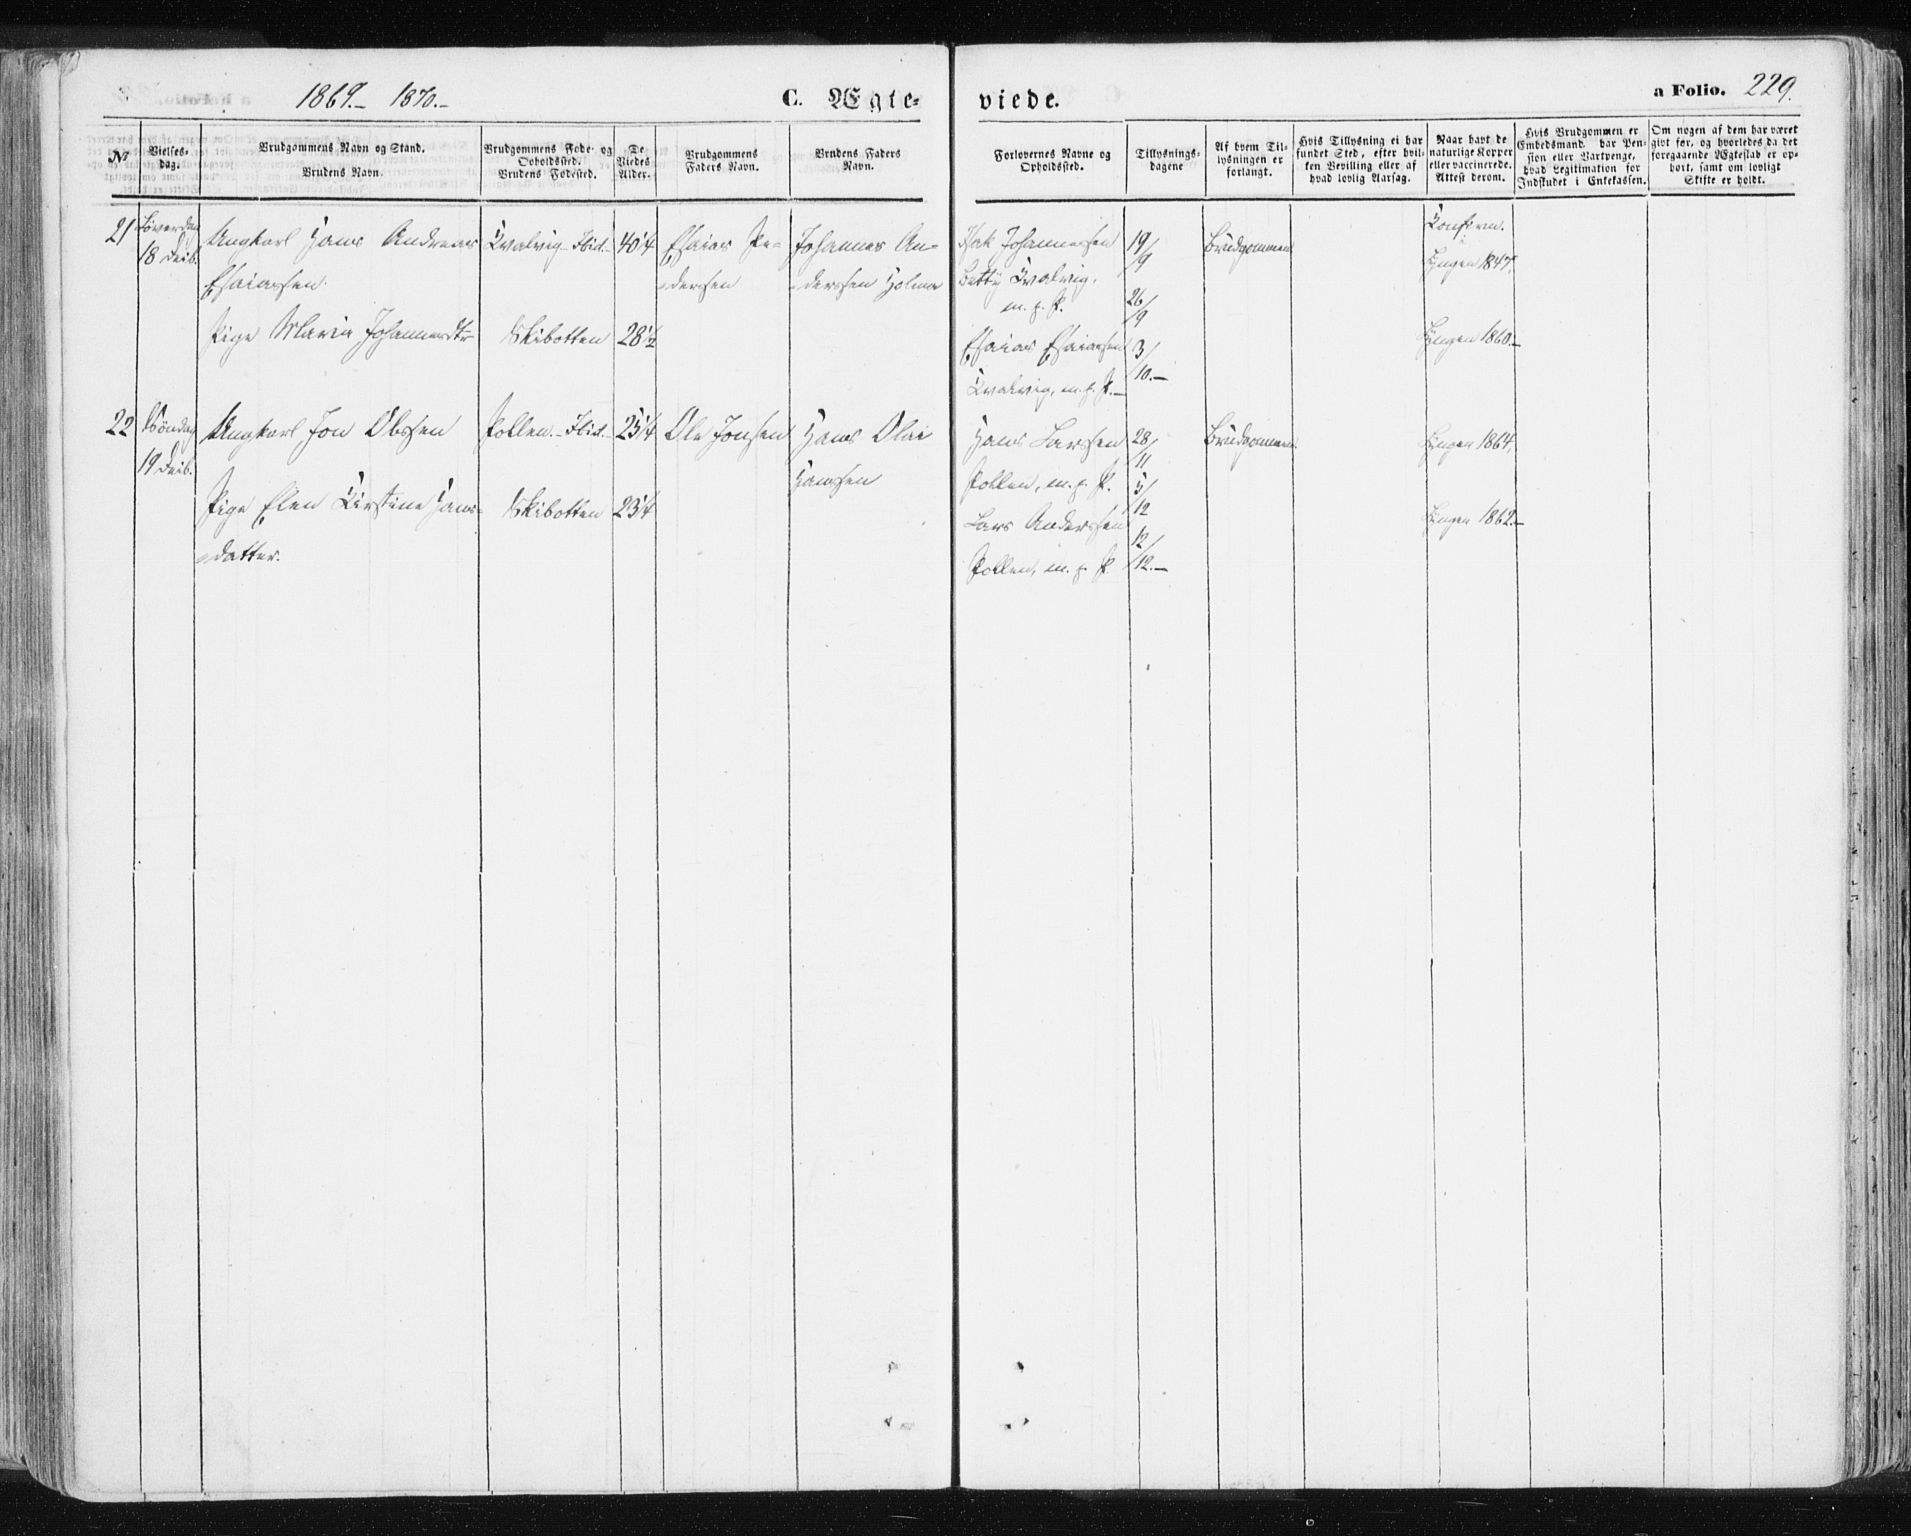 1869.- 1870.-
C. Ægte-
viede.
a Folio. 229.
No
Vielses-
dag.
Brudgommens Navn og Stand.
Brudens Navn.
Brudgommens Føde- og
Opholdssted.
Brudens Fødested.
De
Viedes
Alder.
Brudgommens
Faders Navn.
Brudens Faders
Navn.
Forlovernes Navne og
Opholdssted.
Tillysnings-
dagene
Af hvem Til-
lysningen er
forlangt.
Hvis Tillysning ei har
fundet Sted, efter hvil-
ken Bevilling eller af
hvad lovlig Aarsag.
Naar havt de
naturlige Kopper
eller vaccinerede.
Attest derom.
Hvis Brudgommen er
Embedsmand, har Pen-
sion eller Vartpenge,
hvad Legitimation for
Indskudet i Enkekassen.
Om nogen af dem har været
givt før, og hvorledes da det
foregaaende Ægteskab er op-
hørt, samt om lovligt
Skifte er holdt.
21
Løverdag
18 Decb.
Ungkarl Hans Andreas
Esaiassen.
Pige Maria Johannesdtr
Kvalvig - Ibid.-
Skibotten
40 1/4
28 1/2
Esaias Pe-
dersen
Johannes An-
derssen Holma
Isak Johannessen
Kvalvig,
m. f. P.
Esaias Esaiassen
Kvalvig, m. f. P.-
19/9
26/9
3/10.-
Brudgommen
Konfirm.
Lyngen 1847.
Lyngen 1860.-
22
Søndag
19 Decb.
Ungkarl Jon Olssen
Pige Elen Kirstine Hans-
datter.
Pollen.- Ibid.-
Skibotten
25 1/4
23 1/4
Ole Jonsen
Hans Olai
Hanssen
Hans Larssen
Pollen, m. f. P.
Lars Anderssen
Pollen, m. f. P.
28/11
5/12
12/12.-
Brudgommen
Lyngen 1864.
Lyngen 1862.-